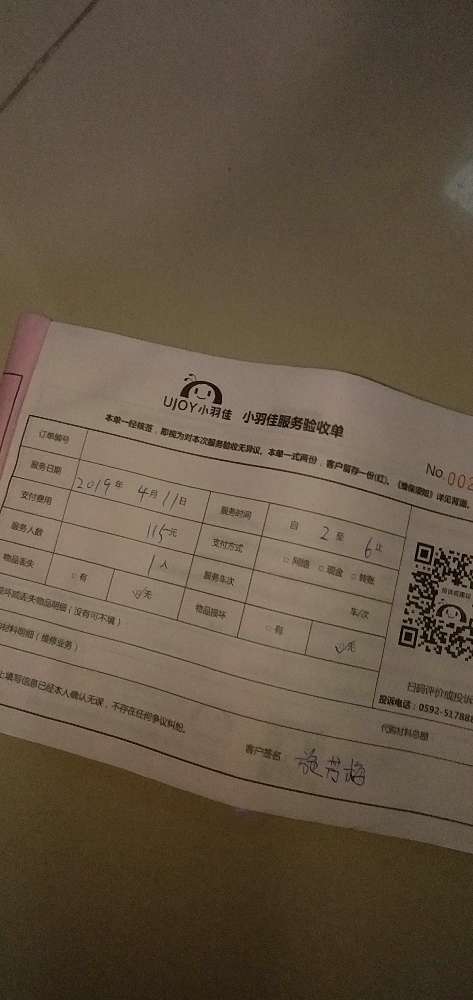 UJOY小羽佳 小羽佳服务验收单
本单一经核签，即视为对本次服务验收无异议。本单一式两份，客户留存一份(红)。《维保须知》详见背面。
No.002
订单编号
服务日期 2019年 4月11日 服务时间 自 2 至 6
支付费用 115元 支付方式 □网络 □现金 □转账
服务人数 1人 服务车次 车/次
物品丢失 □有 ☑无 物品损坏 □有 ☑无
损坏或丢失物品明细（没有可不填）
材料明细（维修业务）
扫码评价或投诉
投诉电话：0592-517888
代购材料总额
上填写信息已经本人确认无误，不存在任何争议纠纷。
客户签名：施芳梅